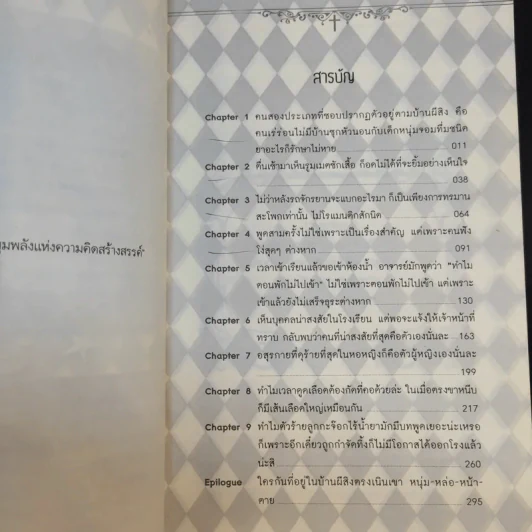 ุมพลังแห่งความคิดสร้างสรรค์"
สารบัญ
Chapter 1 คนสองประเภทที่ชอบปรากฏตัวอยู่ตามบ้านผีสิง คือ
คนเร่ร่อนไม่มีบ้านซุกหัวนอนกับเด็กหนุ่มจอมทึ่มชนิด
ยาอะไรก็รักษาไม่หาย 011
Chapter 2 ตื่นเช้ามาเห็นรูมเมตซักเสื้อ ก็อดไม่ได้ที่จะยิ้มอย่างเห็นใจ
038
Chapter 3 ไม่ว่าหลังรถจักรยานจะแบกอะไรมา ก็เป็นเพียงการทรมาน
สะโพกเท่านั้น ไม่โรแมนติกสักนิด 064
Chapter 4 พูดสามครั้งไม่ใช่เพราะเป็นเรื่องสำคัญ แต่เพราะคนฟัง
โง่สุดๆ ต่างหาก 091
Chapter 5 เวลาเข้าเรียนแล้วขอเข้าห้องน้ำ อาจารย์มักพูดว่า "ทำไม
ตอนพักไม่ไปเข้า" ไม่ใช่เพราะตอนพักไม่ไปเข้า แต่เพราะ
เข้าแล้วยังไม่เสร็จธุระต่างหาก 130
Chapter 6 เห็นบุคคลน่าสงสัยในโรงเรียน แต่พอจะแจ้งให้เจ้าหน้าที่
ทราบ กลับพบว่าคนที่น่าสงสัยที่สุดคือตัวเองนั่นละ 163
Chapter 7 อสุรกายที่ดุร้ายที่สุดในหอหญิงก็คือตัวผู้หญิงเองนั่นละ
199
Chapter 8 ทำไมเวลาดูดเลือดต้องกัดที่คอด้วยล่ะ ในเมื่อตรงขาหนีบ
ก็มีเส้นเลือดใหญ่เหมือนกัน 217
Chapter 9 ทำไมตัวร้ายลูกกะจ๊อกไร้น้ำยามักมีบทพูดเยอะน่ะเหรอ
ก็เพราะอีกเดี๋ยวถูกกำจัดทิ้งก็ไม่มีโอกาสได้ออกโรงแล้ว
น่ะสิ 260
Epilogue ใครกันที่อยู่ในบ้านผีสิงตรงเนินเขา หนุ่ม-หล่อ-หน้า-
ตาย 295